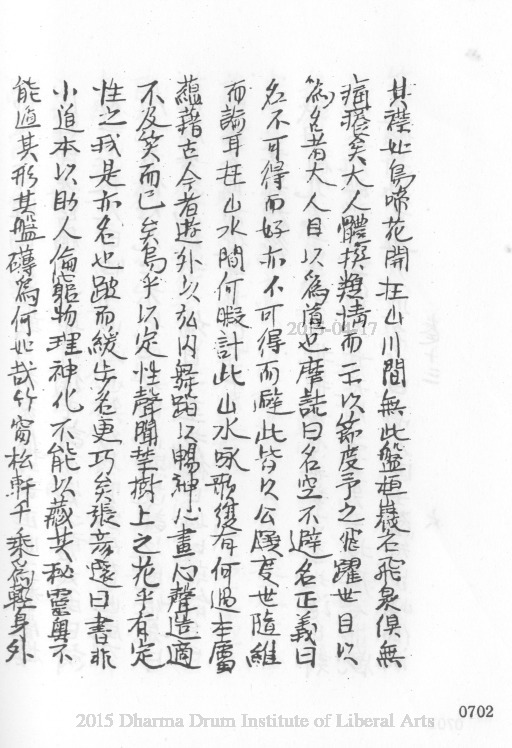 其禮如鳥啼花開在山川間無此盤桓巖石飛泉俱無
痛癢矣大人體撰類情而示以節度予之飛躍世目以
為名者大人目以為道也摩詰曰名空不避名正義曰
名不可得而好亦不可得而辟此皆以公願度世隨維
而論耳在山水間何暇計此山水詠歌復有何過本靈
蘊藉古今者遊外以弘內舞蹈以暢神心畫心聲造適
不及笑而已矣烏乎以定性聲聞莖樹上之花乎有定
性之我是亦名也跛而緩步名更巧矣張彥遠曰書非
小道本以助人倫窮物理神化不能以藏其秘靈奧不
能逃其形其盤礴為何如哉竹窗松軒千乘為輕身外
0702
2015 Dharma Drum Institute of Liberal Arts